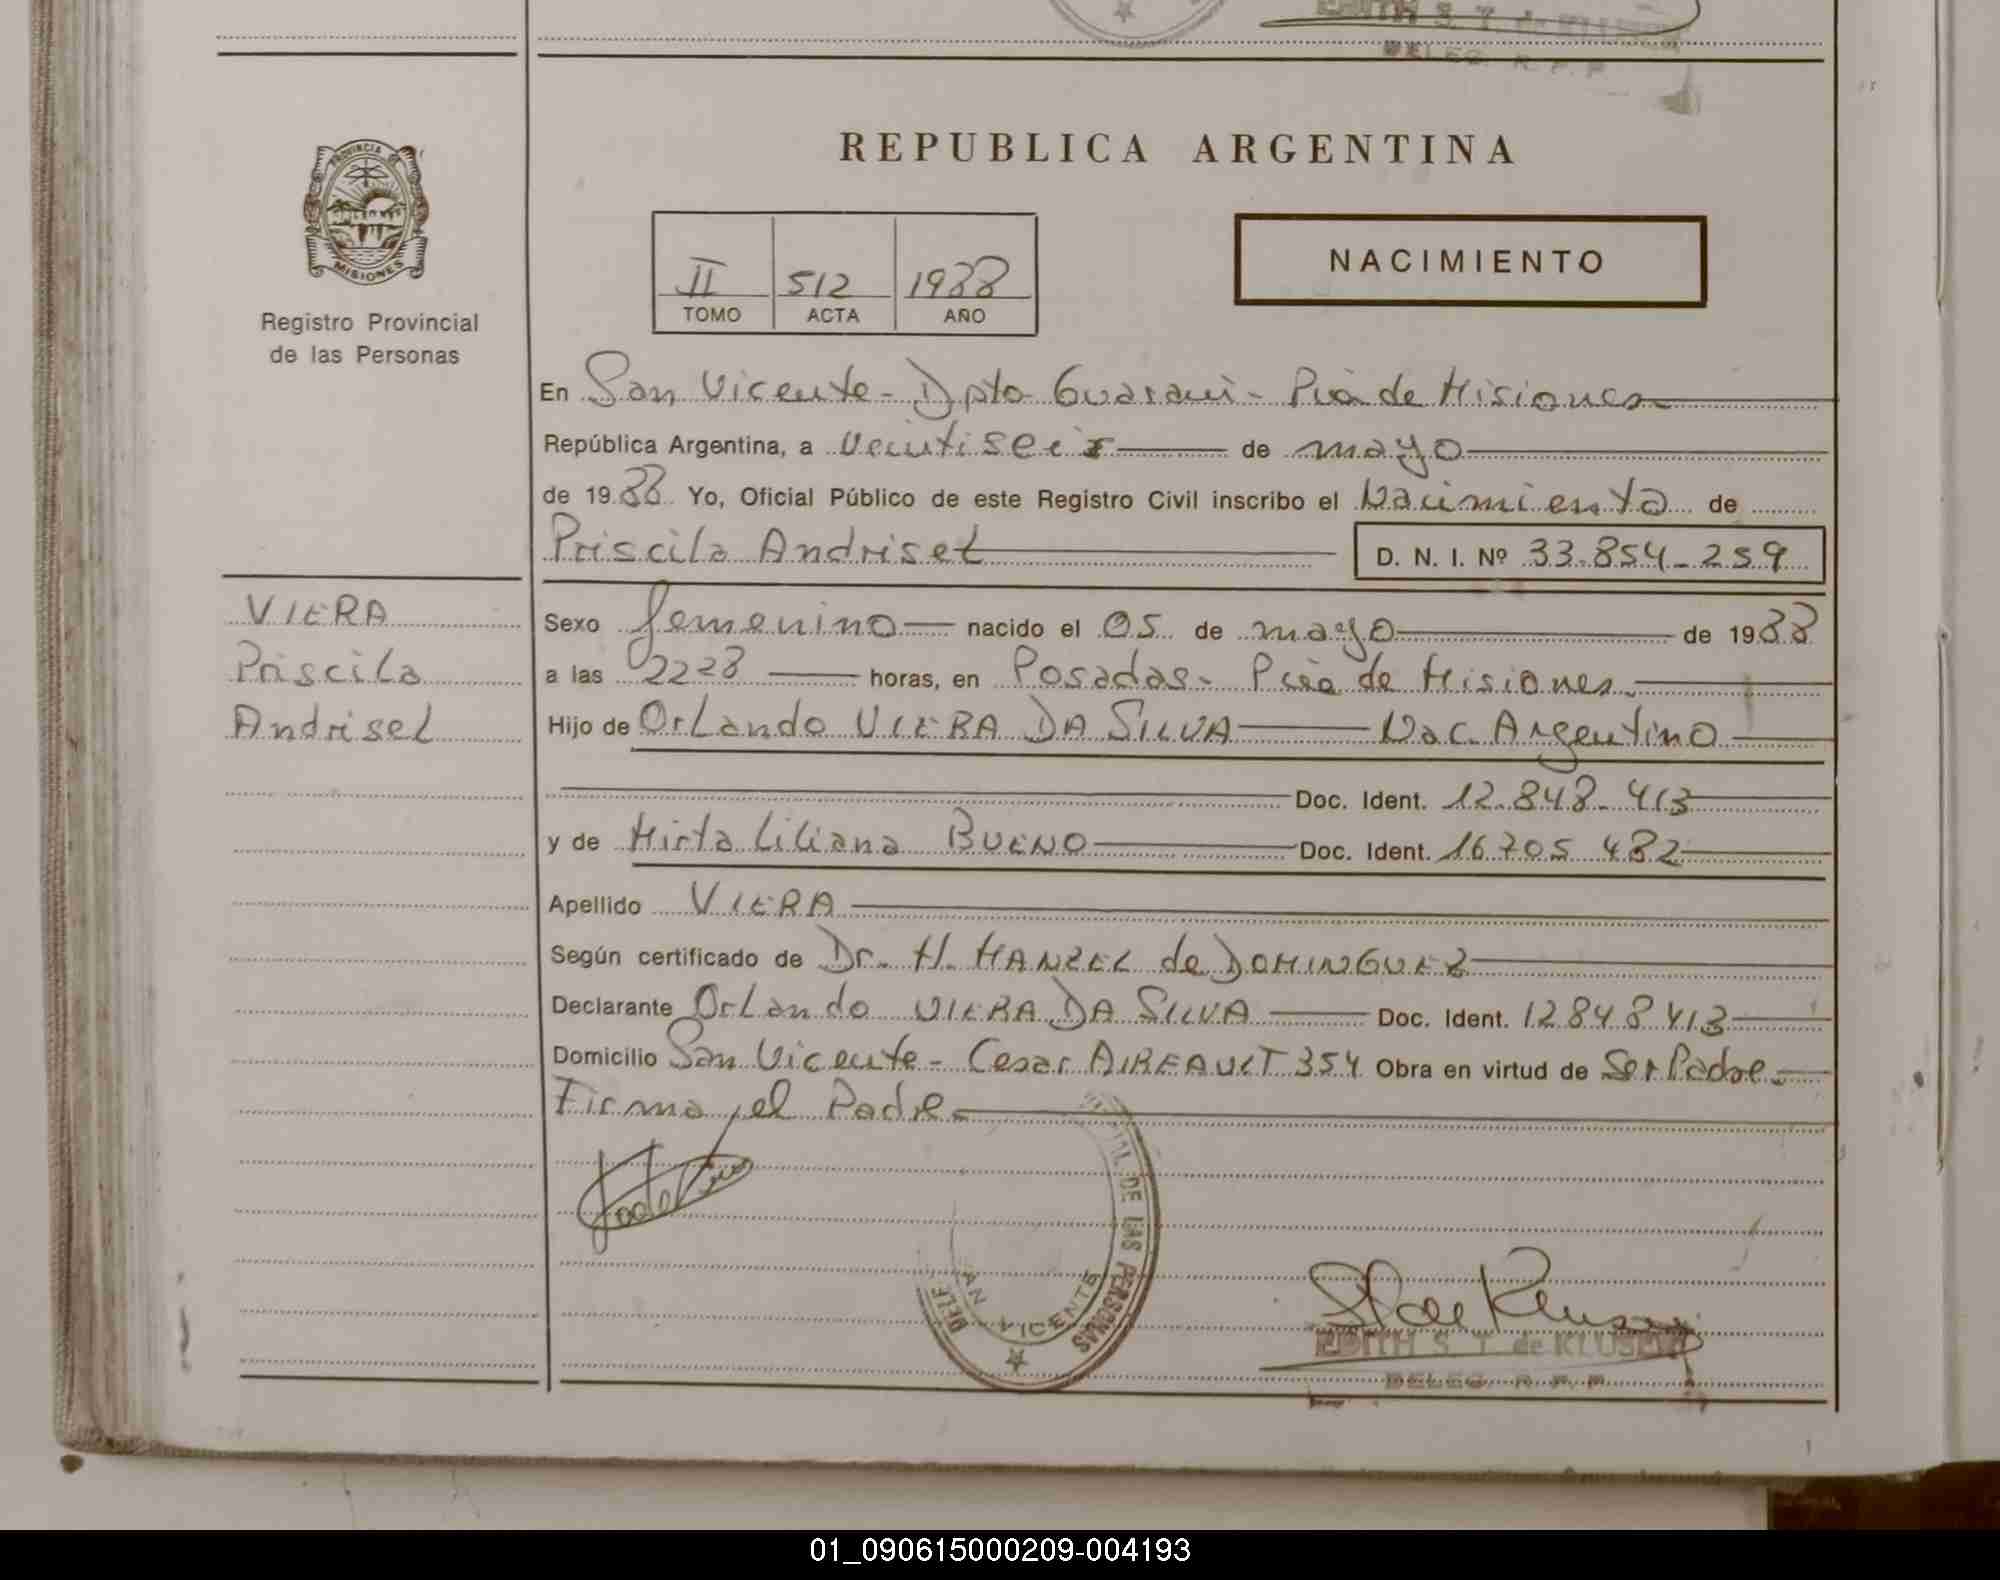 DELEG. R. P. P.
PROVINCIA DE
MISIONES
Registro Provincial
de las Personas
REPUBLICA ARGENTINA
II 512 1988
TOMO ACTA AÑO
NACIMIENTO
En San Vicente - Dpto Guaraní - Pcia de Misiones
República Argentina, a veintiseis de mayo
de 1988 Yo, Oficial Público de este Registro Civil inscribo el Nacimiento de
Priscila Andrisel D. N. I. Nº 33.854-259
VIERA
Priscila
Andrisel
Sexo femenino nacido el 05 de mayo de 1988
a las 2228 horas, en Posadas - Pcia de Misiones.
Hijo de Orlando VIERA DA SILVA Nac. Argentino
Doc. Ident. 12.848.413
y de Mirta Liliana BUENO Doc. Ident. 16.705 482
Apellido VIERA
Según certificado de Dr. H. HANZEL de DOMINGUEZ
Declarante Orlando VIERA DA SILVA Doc. Ident. 12848413
Domicilio San Vicente - Cesar AIREAULT 354 Obra en virtud de Ser Padre.
Firma el Padre
DE LAS PERSONAS
VICENTE
EDITH S. T. de KLUSER
DELEG. R. P. P.
01_090615000209-004193